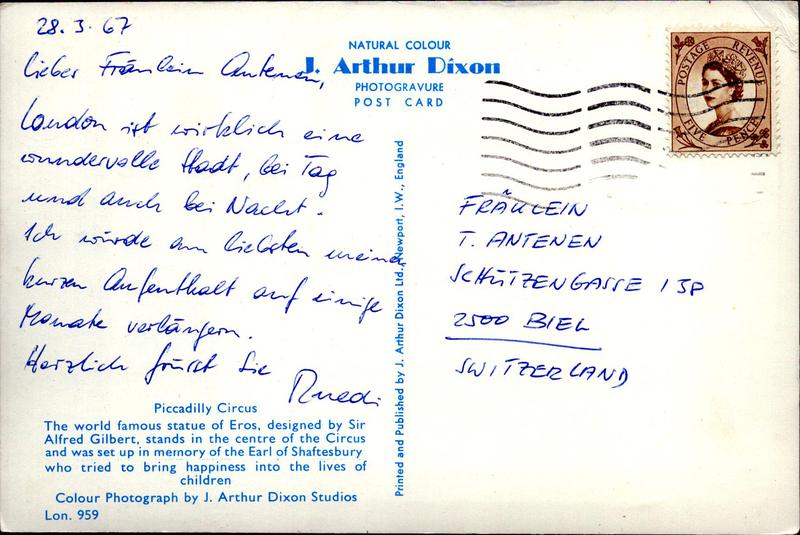 28.3.67
lieber Fräulein Antenen,
London ist wirklich eine
wundervolle Stadt, bei Tag
und auch bei Nacht.
Ich würde am liebsten meinen
kurzen Aufenthalt auf einige
Monate verlängern.
Herzlich grüsst Sie
Ruedi
Piccadilly Circus
The world famous statue of Eros, designed by Sir
Alfred Gilbert, stands in the centre of the Circus
and was set up in memory of the Earl of Shaftesbury
who tried to bring happiness into the lives of
children
Colour Photograph by J. Arthur Dixon Studios
Lon. 959
NATURAL COLOUR
J. Arthur Dixon
PHOTOGRAVURE
POST CARD
Printed and Published by J. Arthur Dixon Ltd., Newport, I.W., England
POSTAGE REVENUE
FIVE PENCE
FRÄULEIN
T. ANTENEN
SCHÜTZENGASSE 139
2500 BIEL
SWITZERLAND